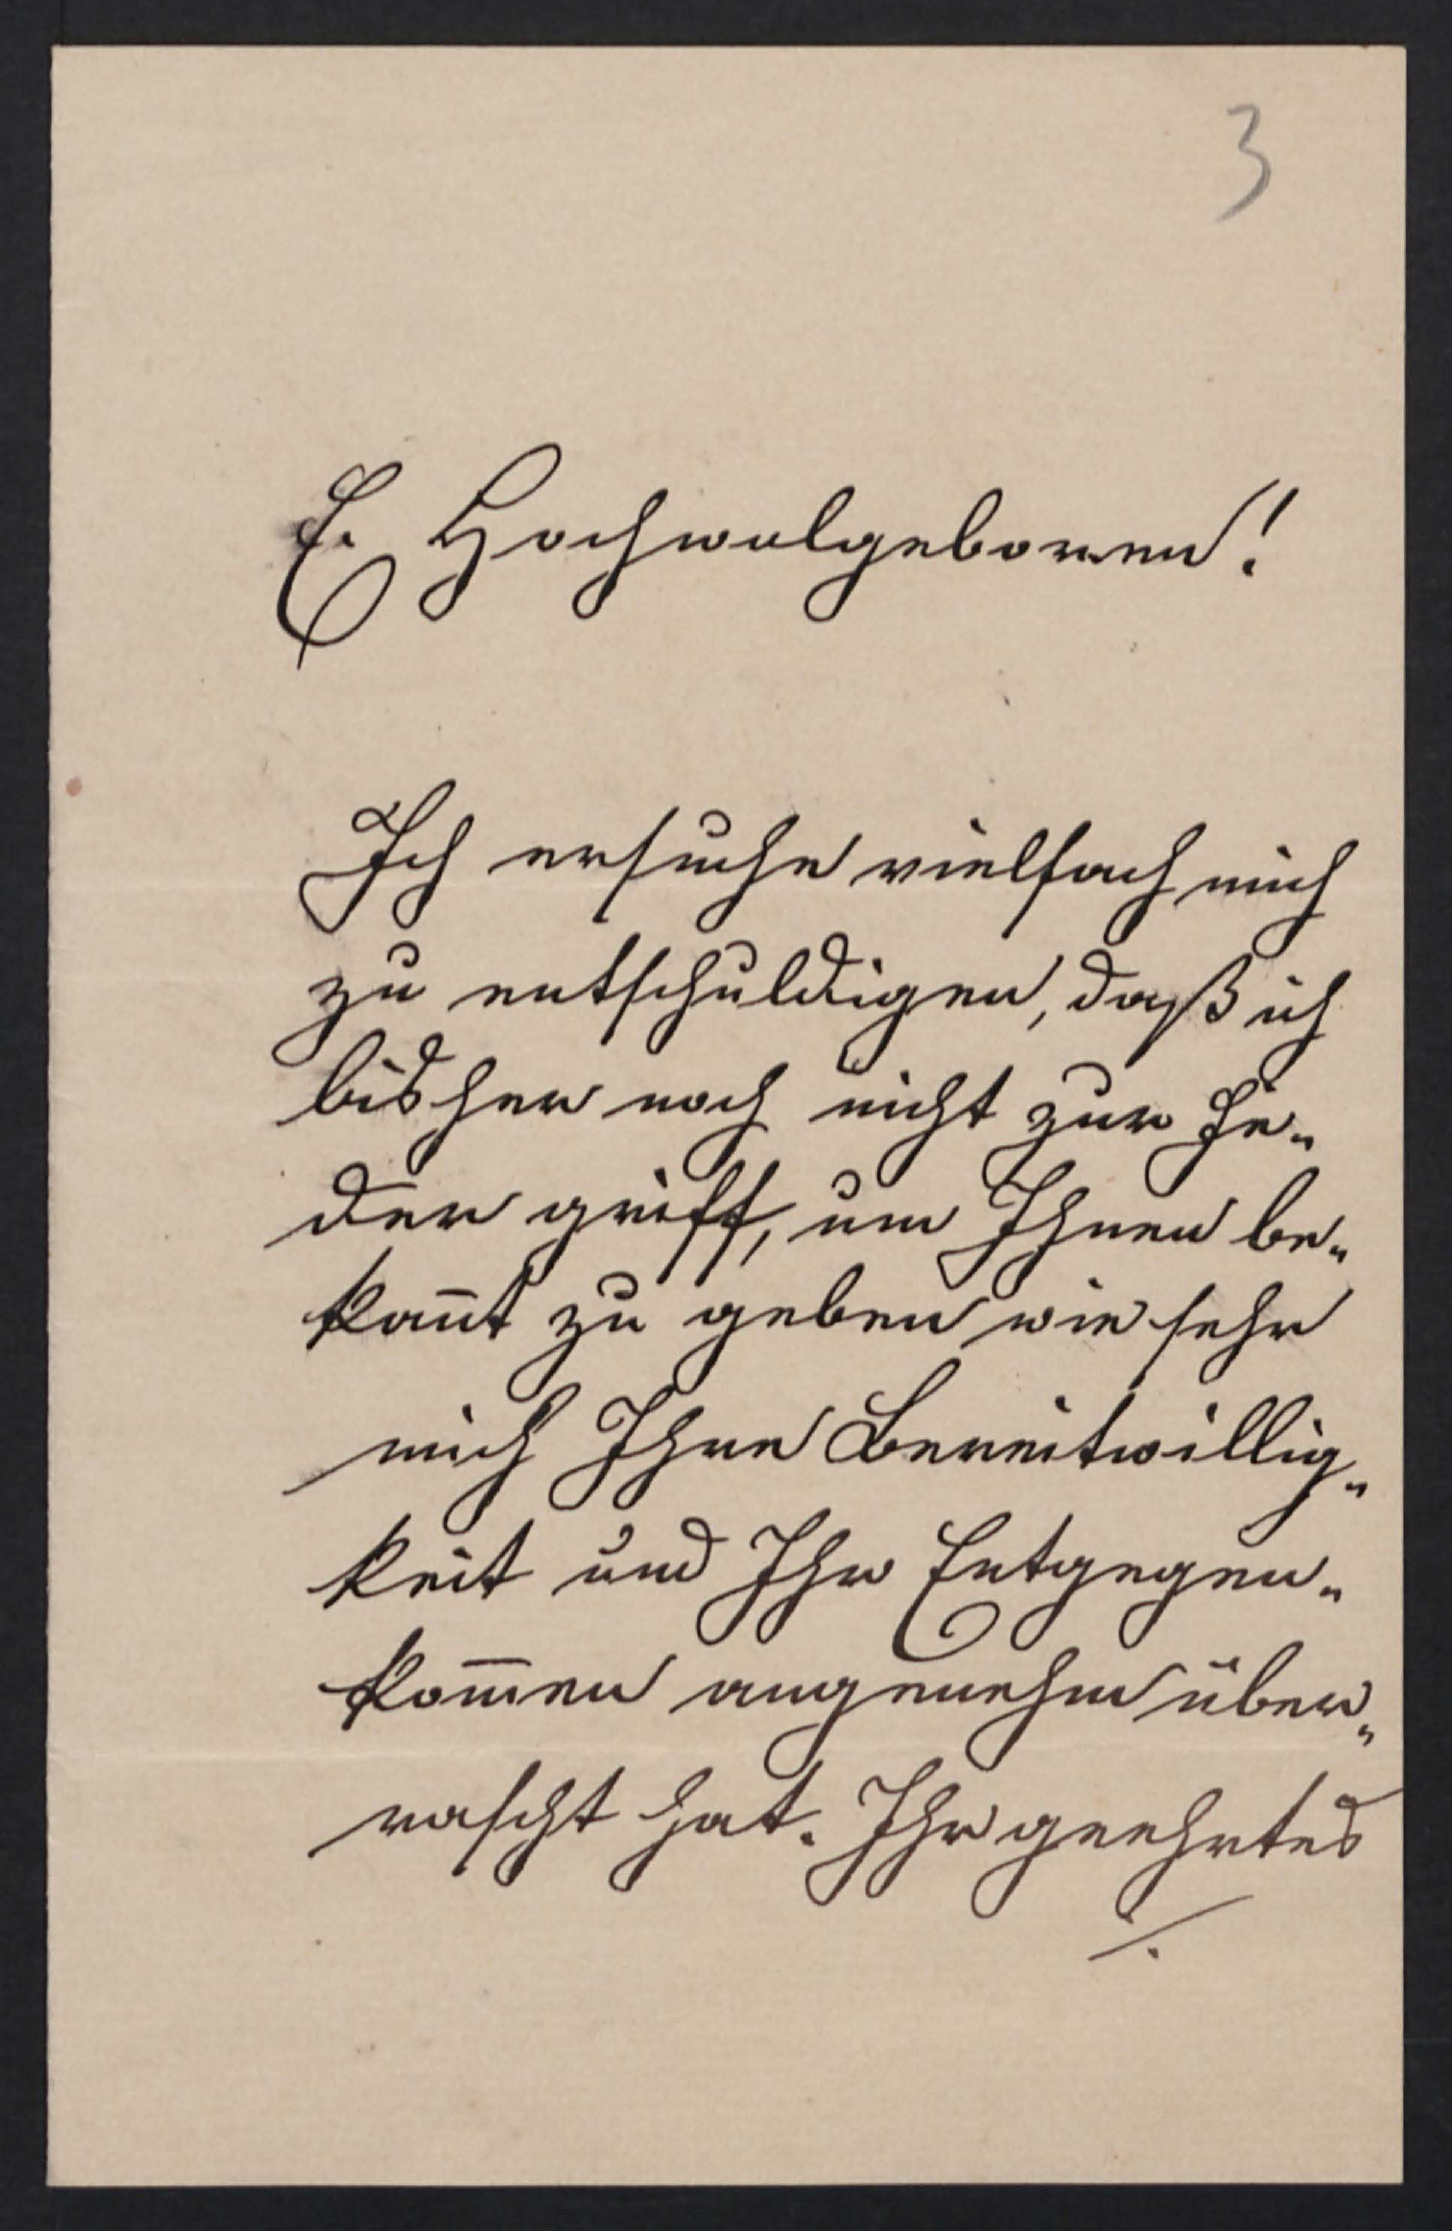 3
E. Hochwolgeboren!
Ich ersuche vielfach mich
zu entschuldigen, daß ich
bisher noch nicht zur Fe-
der griff, um Ihnen be-
kan̄t zu geben wie sehr
mich Ihre Bereitwillig-
keit und Ihr Entgegen-
kom̄en angenehm über-
rascht hat. Ihr geehrtes
./.